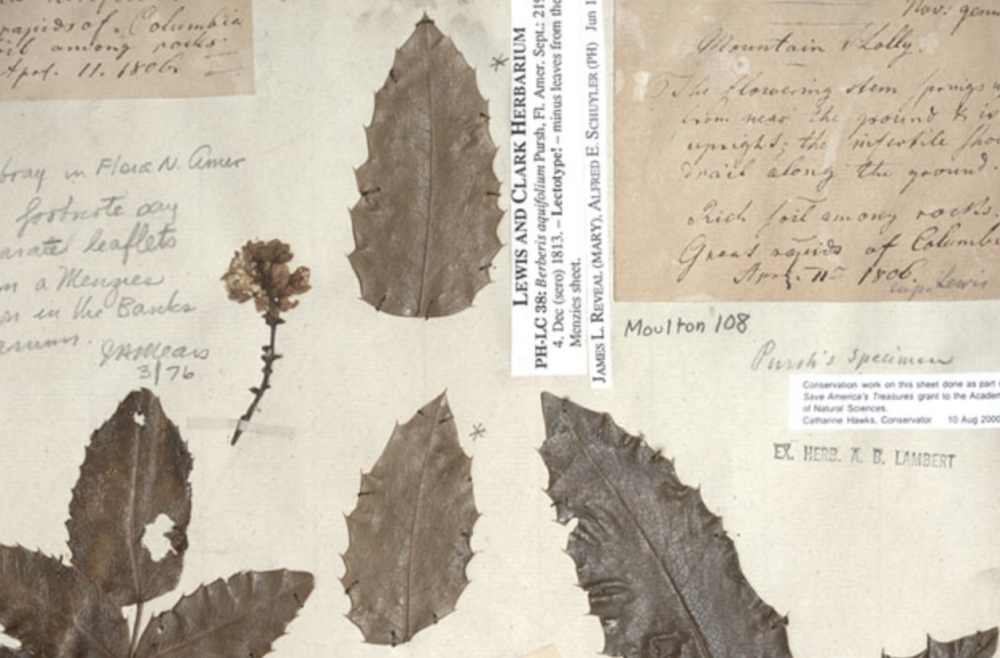 rapids of Columbia
among rocks.
Aprl. 11. 1806
in Flora N. Amer
footnote day
leaflets
a Menzies
in the Banks
JAMears
3/76
*
LEWIS AND CLARK HERBARIUM
PH-LC 38: Berberis aquifolium Pursh, Fl. Amer. Sept.: 219
4. Dec (sero) 1813. – Lectotype! – minus leaves from the
Menzies sheet.
JAMES L. REVEAL (MARY), ALFRED E. SCHUYLER (PH) Jun 1
Nov: gen
Mountain Holly.
The flowering stem springs
from near the ground & is
upright; the infertile shoo
trail along the ground.
Rich soil among rocks.
Great rapids of Columb
Aprl. 11th 1806.
Lewis
Moulton 108
Pursh's specimen
Conservation work on this sheet done as part
Save America's Treasures grant to the Academ
of Natural Sciences.
Catharine Hawks, Conservator 10 Aug 2000
EX. HERB. A. B. LAMBERT
*